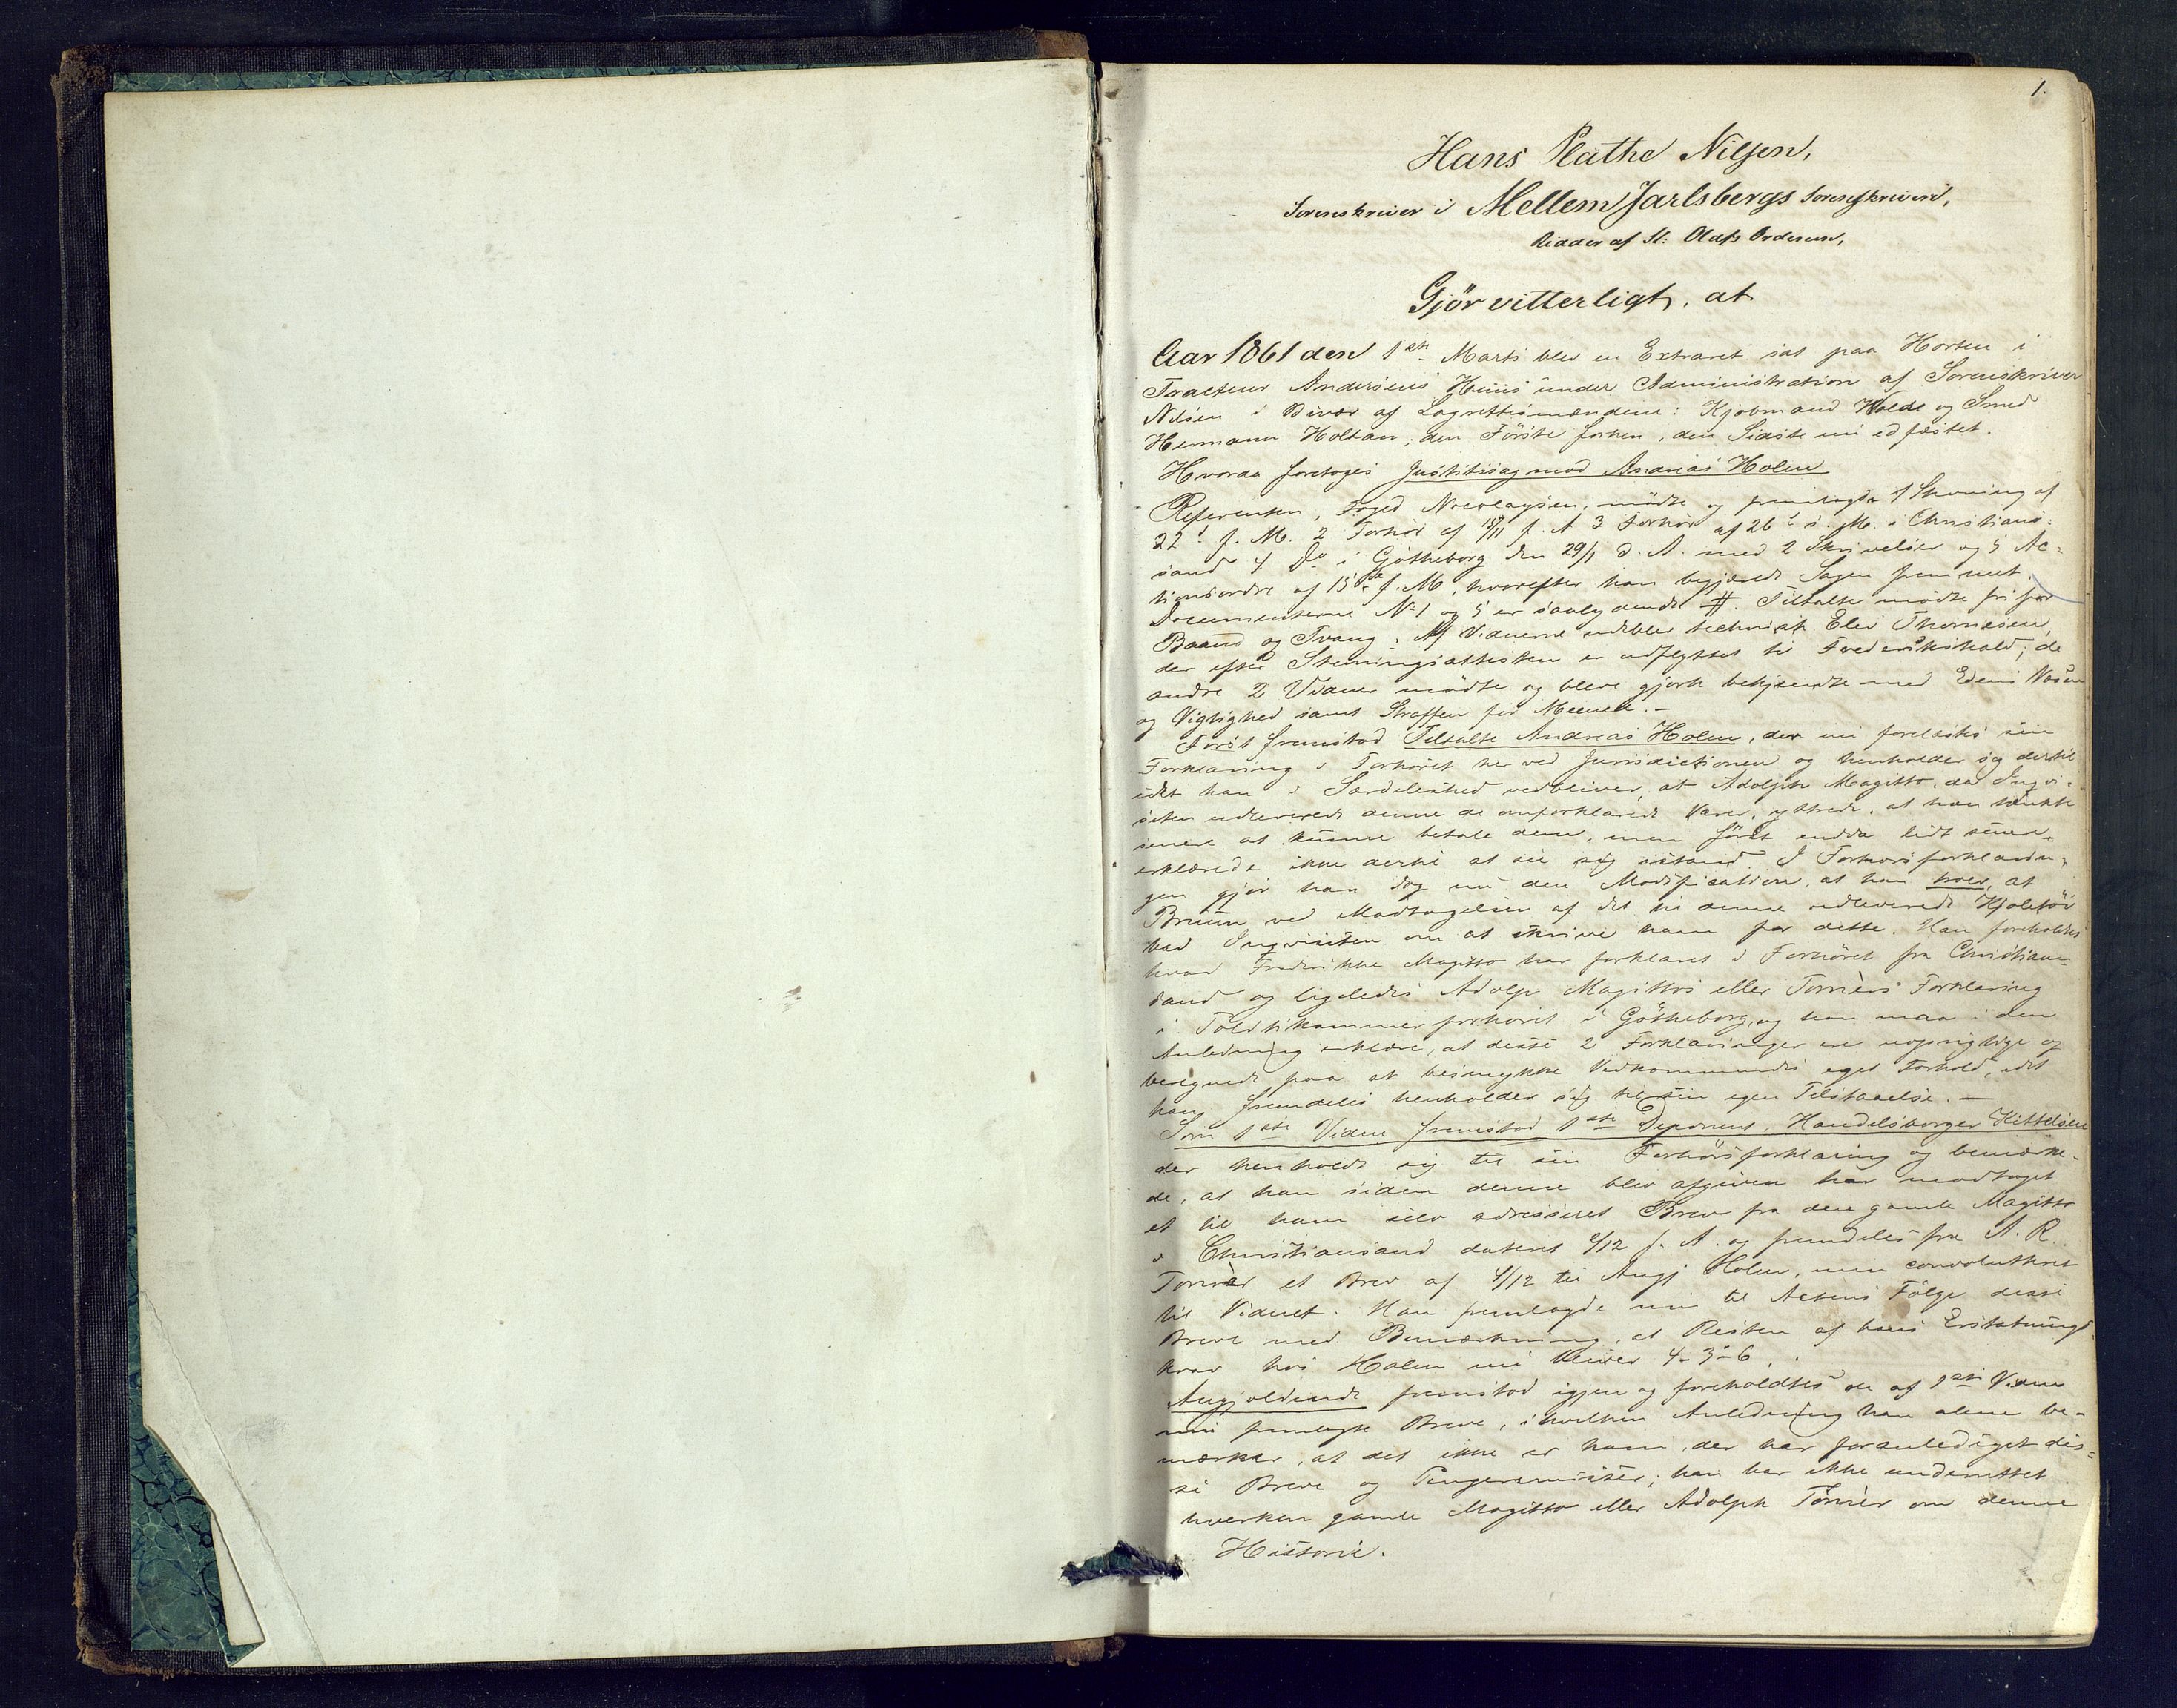 1.
Hans Plathe Nilsen,
Sorenskriver i Mellem Jarlsbergs Sorenskriveri,
Ridder af St: Olafs Ordenen,
Gjör vitterligt, at
Aar 1861 den 1ste Marts blev en Extraret sat paa Horten i
Tracteur Andersens Huus under Administration af Sorenskriver
Nilsen i Bivær af Lagrettesmændene: Kjøbmand Holde og Smed
Hermann Holtan, den Förste forhen, den Sidste nu edfæstet.
Hvorda foretoges Justitssag mod Andreas Holm
Referenten, Foged Nicolaysen, mödte og fremlagde 1 Stevning af
22d f. M. 2 Forhör af 15/11 f. A 3 Forhör af 26d s. M. i Christians-
sand 4 Do i Götheborg den 29/1 d. A. med 2 Skrivelser og 5 Ac-
tionsordre af 15de f. M, hvorefter han begjærede Sagen fremmet.
Documenterne No 1 og 5 er saalydende #. Tiltalte mödte fri for
Baand og Tvang. Af Vidnerne udeblev technisk Elev Thomesen,
der efter Stevningsattesten er udflyttet til Frederikshald; de
andre 2 Vidner mödte og bleve gjort bekjendte med Edens Væsen
og Vigtighed samt Straffen for Meened.-
Först fremstod Tiltalte Andreas Holm, der nu forelæstes sin
Forklaring i Forhöret her ved Jurisdictionen og henholder sig dertil
idet han i Særdeleshed vedbliver, at Adolph Magitto, da Inqvi-
siten udleverede denne de omforklarede Varer, yttrede, at han tænkte
senere at kunne betale dem, men först endda lidt senere
erklærede ikke dertil at see sig istand. I Forhörsforklarin-
gen gjör han dog nu den Modification, at han troer, at
Bruun ved Modtagelsen af det til denne udleverede Kjoletöi
bad Inqvisiten om at skrive ham for dette. Han foreholdtes
hvad Fredrikke Magitto har forklaret i Forhöret fra Christian-
sand og ligeledes Adolp Magittos eller Tornèrs Forklaring
i Poletikammerforhöret i Götheborg, og han maa i den
Anledning erklære, at disse 2 Forklaringer ere uoprigtige og
beregnede paa at besmykke Vedkommendes eget Forhold, idet
han fremdeles henholder sig til sin egen Tilstaaelse.-
Som 1ste Vidne fremstod 1ste Deponent, Handelsborger Kittelsen
der henholdt sig til sin Forhörsforklaring og bemærke-
de, at han siden denne blev afgiven har modtaget
et til ham selv adresseret Brev fra den gamle Magitto
i Christiansand dateret 9/12 f. A. og fremdeles fra A. R.
Tornèr et Brev af 4/12 til Angj Holm, men convoluttheret
til Vidnet. Han fremlagde nu til Actens Fölge disse
Breve med Bemærkning, at Resten af hans Erstatnings
krav hos Holm nu bliver 4-3-6.
Angjældende fremstod igjen og foreholdtes de af 1ste Vidne
nu fremlagte Breve, i hvilken Anledning han alene be-
mærker, at det ikke er ham, der har foranlediget dis-
se Breve og Pengeremisser; han har ikke underrettet
hverken gamle Magitto eller Adolph Tornèr om denne
Historie.